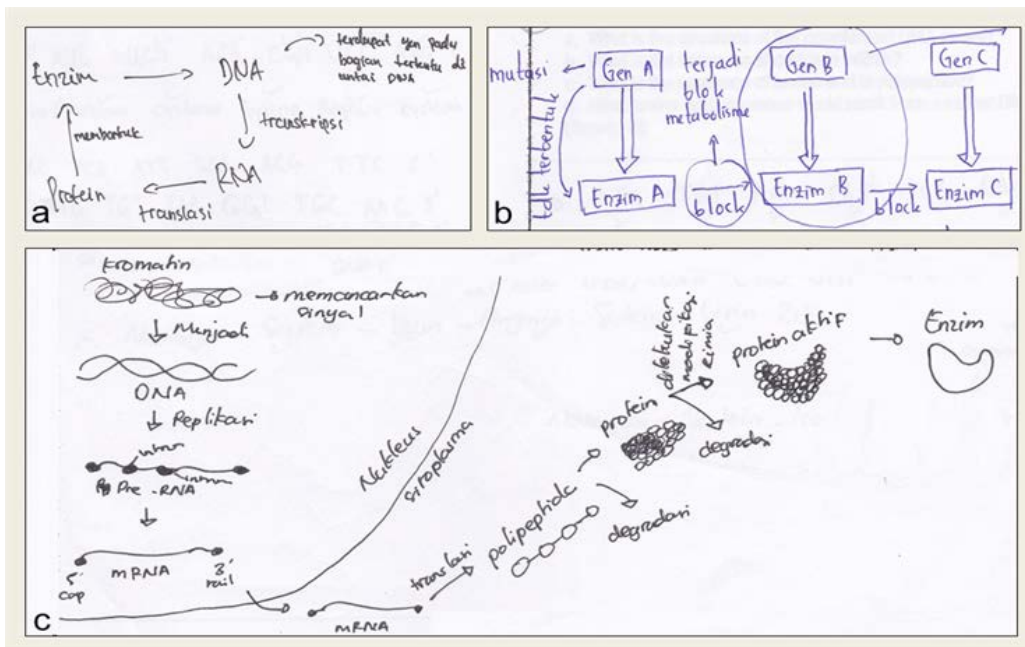 Enzim
DNA
terdapat gen pada
bagian tertentu di
untai DNA
transkripsi
membentuk
Protein
RNA
translasi
a
mutasi
Gen A
terjadi
blok
metabolisme
Gen B
Gen C
tdk terbentuk
Enzim A
block
Enzim B
block
Enzim C
b
kromatin
memancarkan
sinyal
Menjadi
DNA
Replikasi
Pre-RNA
5'
cap
mRNA
3'
Nukleus
sitoplasma
mRNA
translasi
polipeptida
degradasi
protein
degradasi
dilakukan
kimia
protein aktif
Enzim
c